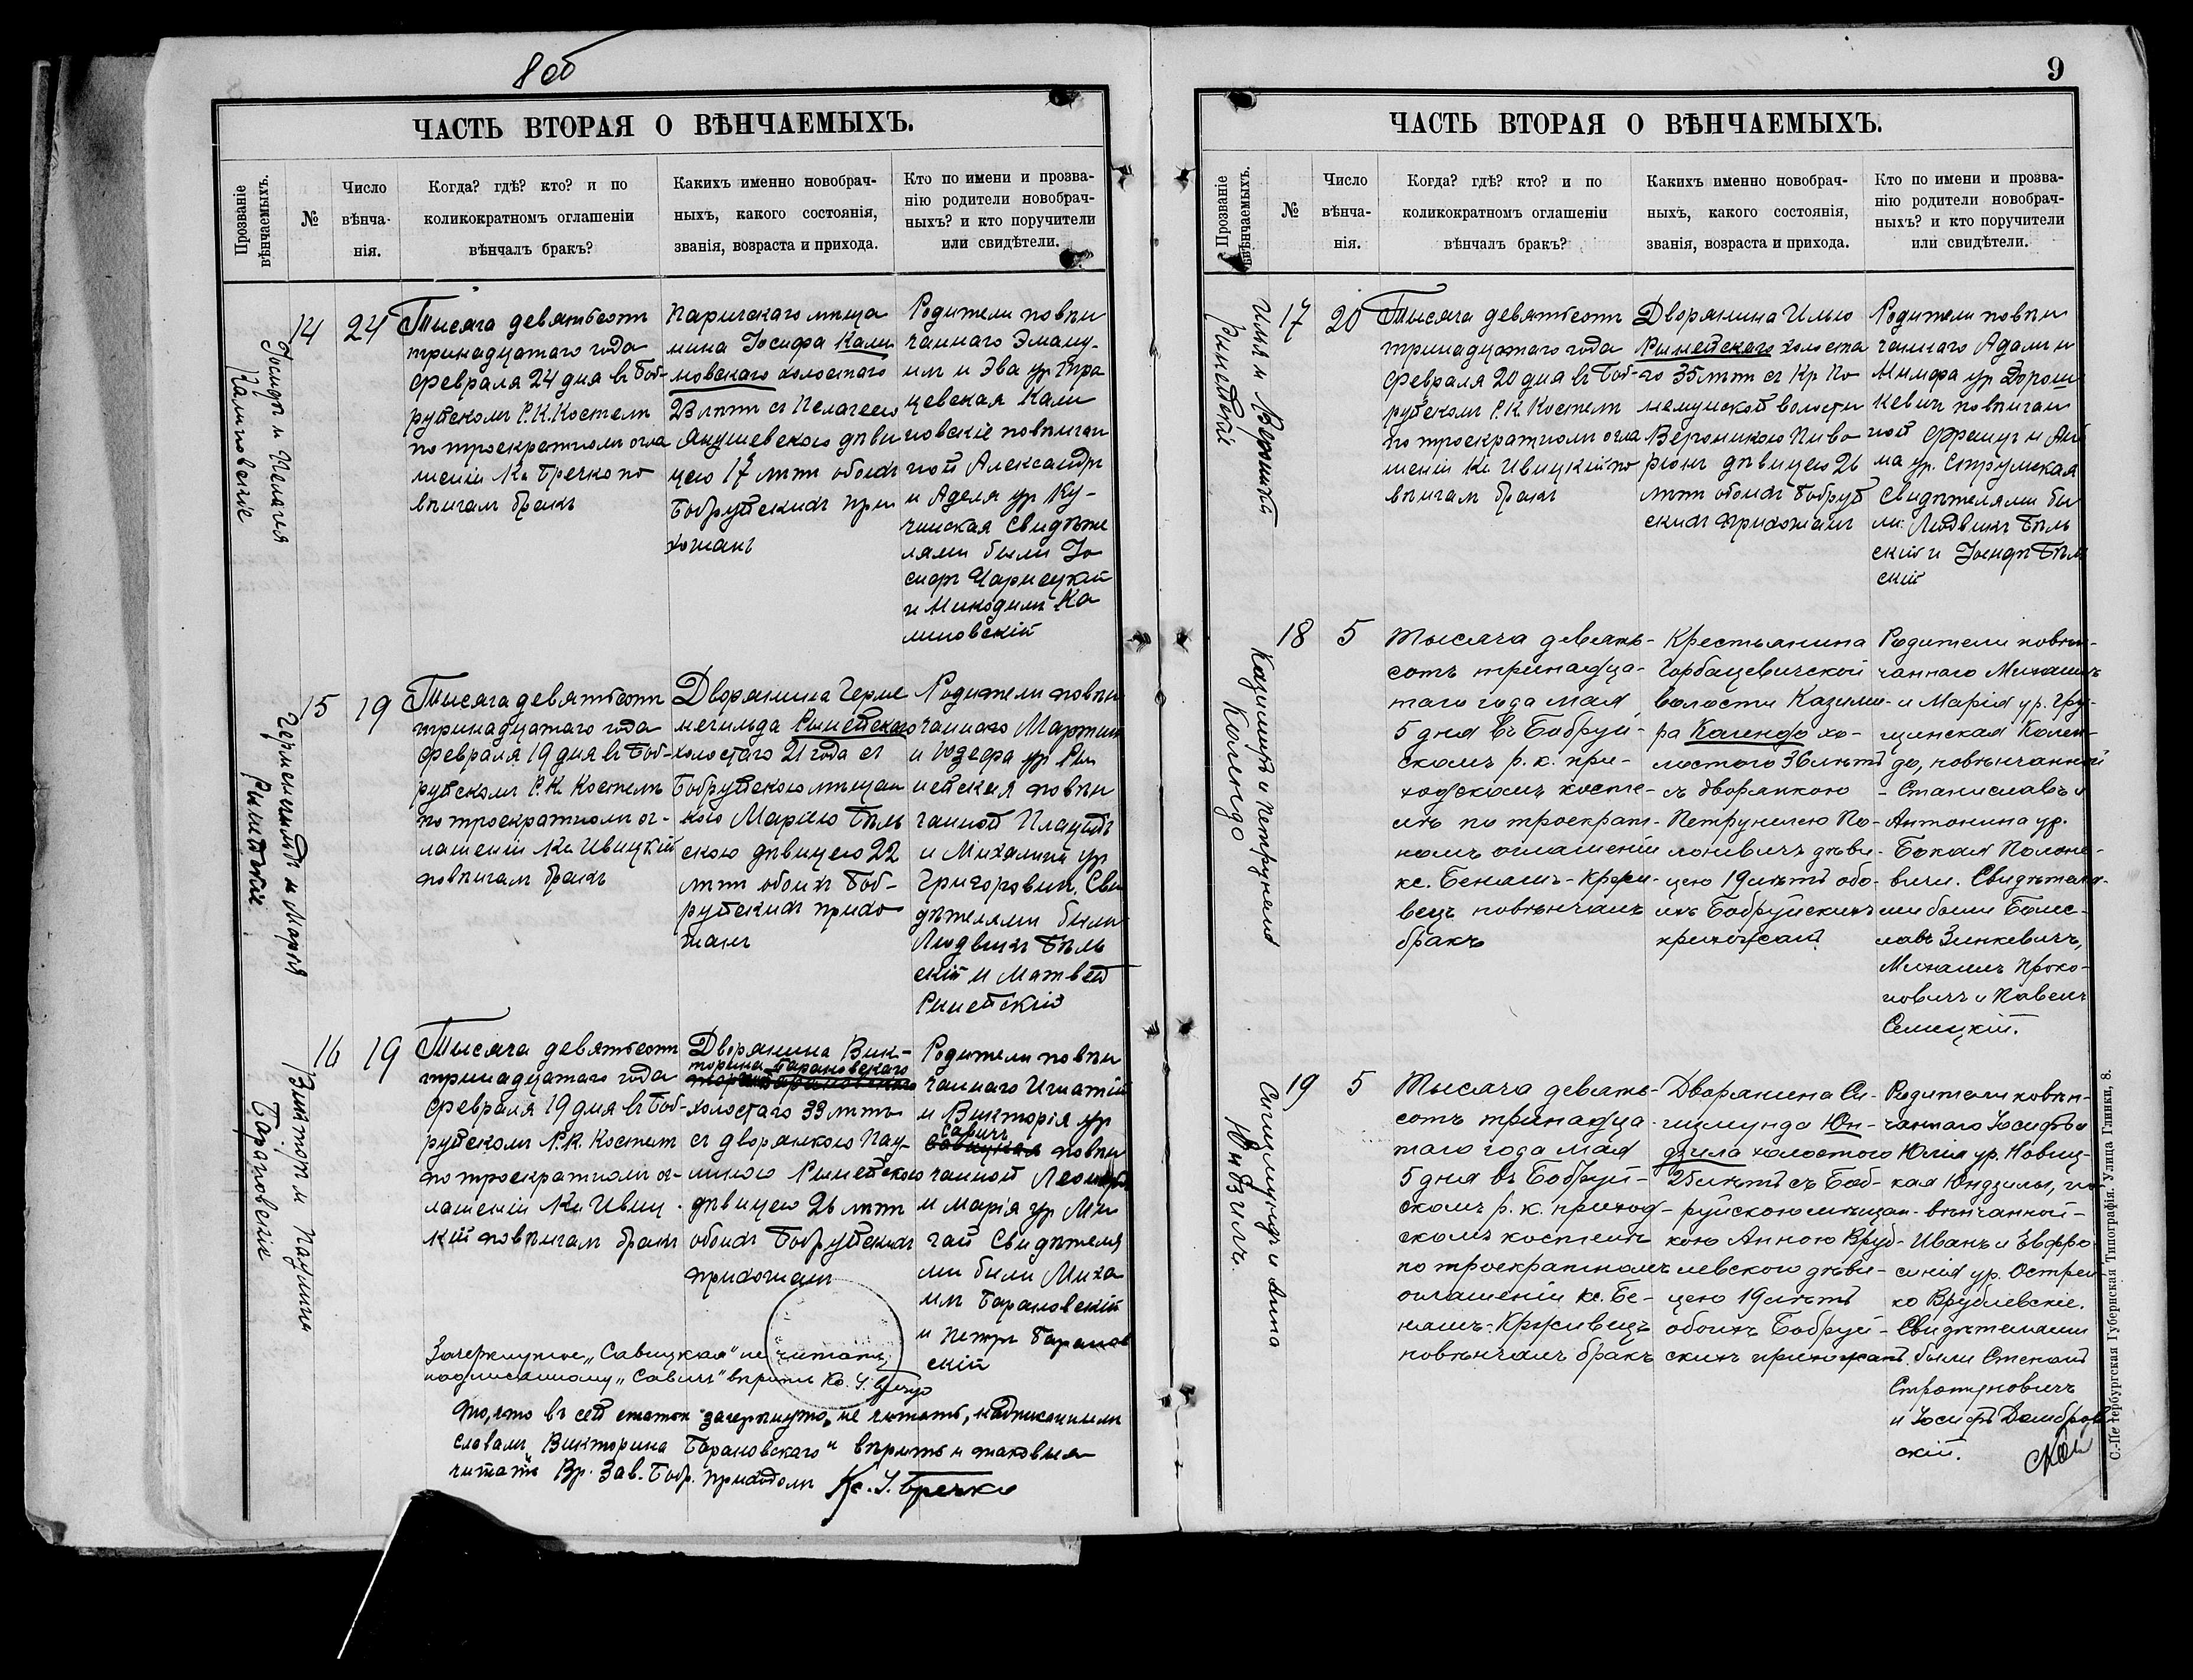 8 об
ЧАСТЬ ВТОРАЯ О ВѢНЧАЕМЫХЪ.
Прозваніе
вѣнчаемыхъ.
№
Число
вѣнча-
нія.
Когда? гдѣ? кто? и по
коликократномъ оглашеніи
вѣнчалъ бракъ?
Какихъ именно новобрач-
ныхъ, какого состоянія,
званія, возраста и прихода.
Кто по имени и прозва-
нію родители новобрач-
ныхъ? и кто поручители
или свидѣтели.
Іосифъ и Пелагея
Калиновскіе
14
24
Тысяча девятьсотъ
тринадцатаго года
февраля 24 дня въ Боб-
руйскомъ Р.К. Костелѣ
по троекратномъ огла
шеніи Кс. Бречко по
вѣнчалъ бракъ
Паричскаго мѣща
нина Іосифа Кали
новскаго холостаго
23 лѣтъ съ Пелагеею
Янушевскою дѣви
цею 17 лѣтъ обоихъ
Бобруйскихъ при
хожанъ
Родители повѣн
чаннаго Эману-
илъ и Эва ур
цевская Кали
новскіе повѣнчан
ной Александръ
и Аделя ур Ку-
чинская Свидѣте
лями были Іо
сифъ Чарнецкій
и Никодимъ Ка
линовскій
Герменегильдъ и Марія
Рынейскіе
15
19
Тысяча девятьсотъ
тринадцатаго года
февраля 19 дня въ Боб-
руйскомъ Р.К. Костелѣ
по троекратномъ ог-
лашеніи Кс Ивицкій
повѣнчалъ бракъ
Дворянина Герме
негильда Рынейскаго
холостаго 21 года съ
Бобруйскою мѣщан
кою Маріею Бѣль
скою дѣвицею 22
лѣтъ обоихъ Боб-
руйскихъ прихо
жанъ
Родители повѣн
чаннаго Мартинъ
и Юзефа ур Ры
нейская повѣн
чанной Плацидъ
и Михалина ур
Григоровичъ. Сви
дѣтелями были
Людвикъ Бѣль
скій и Матвей
Рынейскій
Викторъ и Паулина
Барановскіе
16
19
Тысяча девятьсотъ
тринадцатаго года
февраля 19 дня въ Боб-
руйскомъ Р.К. Костелѣ
по троекратномъ ог-
лашеніи Кс Ивиц
кій повѣнчалъ бракъ
Дворянина Вик-
торина Барановскаго
холостаго 33 лѣтъ
съ дворянкою Пау-
линою Рынейскою
дѣвицею 26 лѣтъ
обоихъ Бобруйскихъ
прихожанъ
Родители повѣн
чаннаго Игнатій
и Викторія ур
Савичъ
Савицкая повѣн
чанной Леонардъ
и Марія ур Ми
гай Свидѣтеля
ми были Миха
илъ Барановскій
и Петръ Баранов
скій
Зачеркнутое „Савицкая" не читать
надписанному „Савичъ" вѣрить Кс. І. Бречко
То, что въ сей статьѣ зачеркнуто, не читать, надписаннымъ
словамъ „Викторина Барановскаго" вѣрить и таковыя
читать Вр. Зав. Бобр. приходомъ Кс. І. Бречко
9
ЧАСТЬ ВТОРАЯ О ВѢНЧАЕМЫХЪ.
Прозваніе
вѣнчаемыхъ.
№
Число
вѣнча-
нія.
Когда? гдѣ? кто? и по
коликократномъ оглашеніи
вѣнчалъ бракъ?
Какихъ именно новобрач-
ныхъ, какого состоянія,
званія, возраста и прихода.
Кто по имени и прозва-
нію родители новобрач-
ныхъ? и кто поручители
или свидѣтели.
Илья и Вероника
Рынейскіе
17
20
Тысяча девятьсотъ
тринадцатаго года
февраля 20 дня въ Боб-
руйскомъ Р.К. Костелѣ
по троекратномъ огла
шеніи Кс Ивицкій по
вѣнчалъ бракъ
Дворянина Илью
Рынейскаго холоста
го 35 лѣтъ съ Кр По
волости
Вероникою Пиво
дѣвицею 26
лѣтъ обоихъ Бобруй
скихъ прихожанъ
Родители повѣн
чаннаго Адамъ и
Нимфа ур Дорош
кевичъ повѣнчан
ной Францъ и Ан
на ур. Струмская
Свидѣтелями бы
ли: Людвикъ Бѣль
скій и Іосифъ Бѣль
скій
Казимиръ и Петрунеля
Календо
18
5
Тысяча девять-
сотъ тринадца-
таго года мая
5 дня въ Бобруй-
скомъ р. к. при-
ходскомъ косте-
лѣ по троекрат-
номъ оглашеніи
кс. Бенашъ-Кржи-
вецъ повѣнчалъ
бракъ
Крестьянина
Горбацевичской
волости Казими-
ра Календо хо-
лостого 36 лѣтъ
съ дворянкою
Петрунелею По-
лоневичъ дѣви-
цею 19 лѣтъ обо-
ихъ Бобруйскихъ
прихожан.
Родители повѣн-
чаннаго Михаилъ
и Марія ур. Гру-
щинская Кален-
до, повѣнчанной
- Станиславъ и
Антонина ур.
Бокая Полоне-
вичи. Свидѣтеля-
ми были Болес-
лавъ Зинкевичъ,
Михаилъ Проко-
повичъ и Павелъ
Селицкій.
Сигизмундъ и Анна
Юндзилъ.
19
5
Тысяча девять-
сотъ тринадца-
таго года мая
5 дня въ Бобруй-
скомъ р. к. приход-
скомъ костелѣ
по троекратномъ
оглашеніи кс. Бе-
нашъ-Кржвецъ
повѣнчалъ бракъ
Дворянина Си-
гизмунда Юн-
дзила холостого
25 лѣтъ съ Боб-
руйскою мѣщан-
кою Анною Вруб-
левскою дѣви-
цею 19 лѣтъ
обоихъ Бобруй-
скихъ прихожанъ.
Родители повѣн-
чаннаго Іосифъ и
Юлія ур. Новиц-
кая Юндзилы, по-
вѣнчанной -
Иванъ и Евфро-
синія ур. Острей-
ко Врублевскіе.
Свидѣтелями
были Степанъ
Стротуновичъ
и Іосифъ Домбров
скій.
С.-Петербургская Губернская Типографія. Улица Глинки, 8.